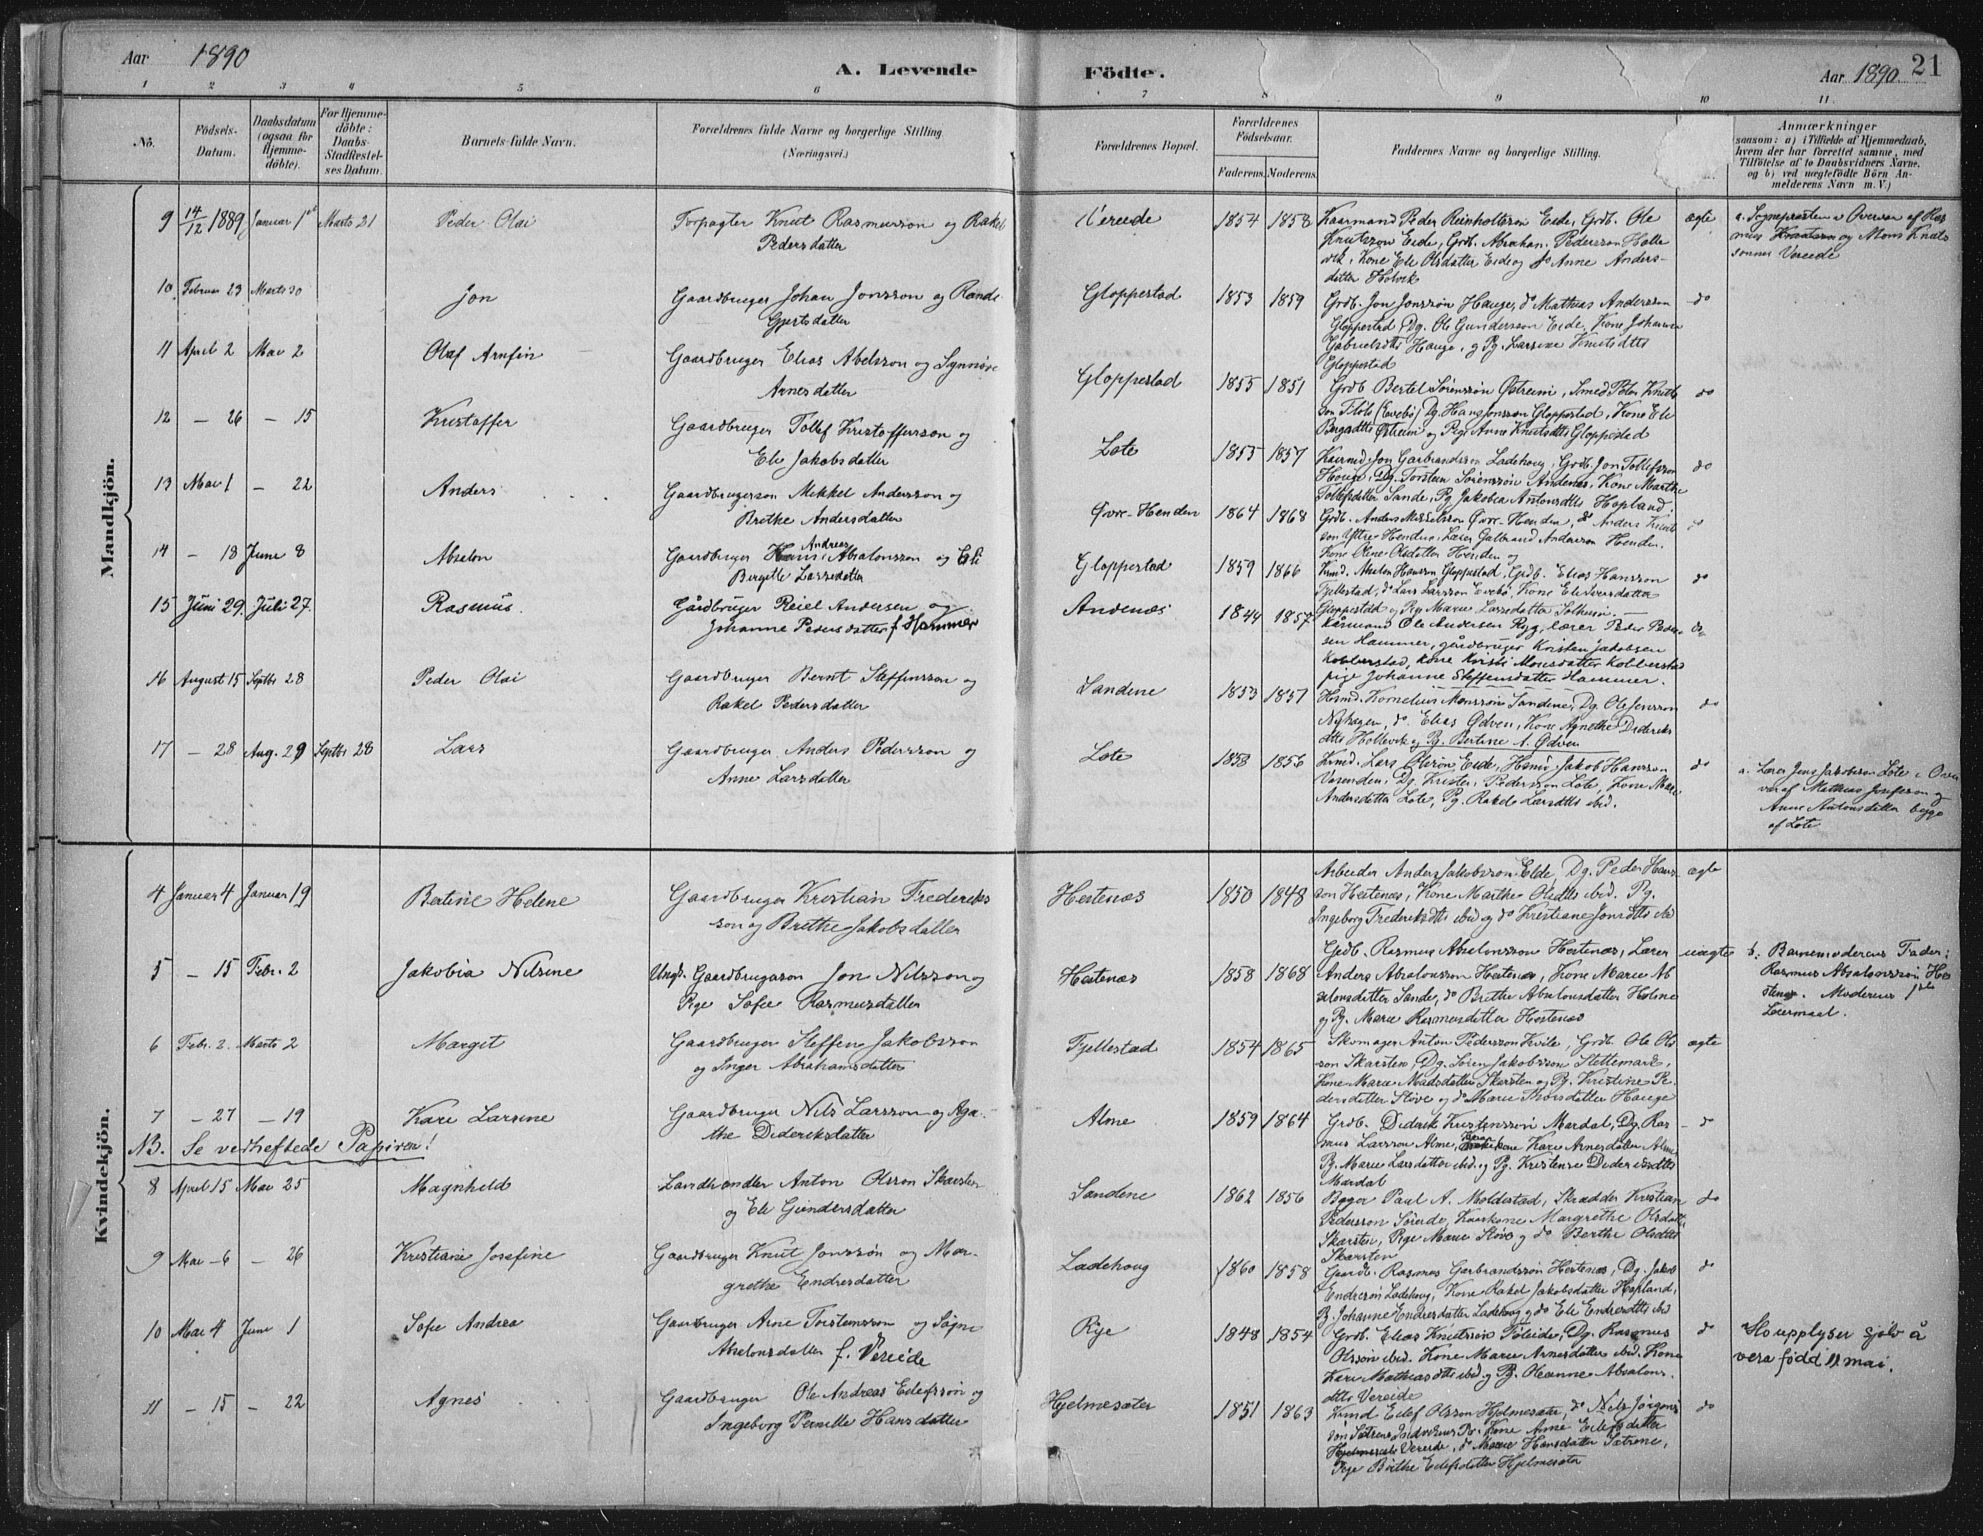 Aar 1890
A. Levende Födte.
Aar 1890. 21
1 2 3 4 5 6 7 8 9 10 11
No.
Födsels-Datum.
Daabsdatum (ogsaa for Hjemmedöbte).
For Hjemmedöbte: Daabs-Stadfæstelses Datum.
Barnets fulde Navn.
Forældrenes fulde Navne og borgerlige Stilling. (Næringsvei.)
Forældrenes Bopæl.
Forældrenes Födselsaar.
Faderens. Moderens.
Faddernes Navne og borgerlige Stilling.
Anmærkninger
saasom: a) i Tilfælde af Hjemmedaab,
hvem der har forrettet samme, med
Tilföielse af to Daabsvidners Navne,
og b) ved uægtefödte Börn An-
melderens Navn m. V.)
Mandkjön.
9 14/12 1889 Januar 1 Marts 21 Peder Olai Forpagter Knut Rasmusson og Rakel
Pedersdatter
Vereide 1854 1858 Kaarmand Peder Reinholtsson Eide, Grdb. Ole
Knutsson Eide, Grdb. Abraham Pedersson Holle
vik, Kone Eli Olsdatter Eide og do Anne Anders-
datter Holvik
ægte
a. Sognepresten i Overvær af Ras
mus og Mons Knuts
sonner Vereide
10. Februar 23 Marts 30 Jon Gaardbruger Johan Jonsson og Rande
Gjertsdatter
Gloppestad 1853 1859 Grdb. Jon Jonssøn Hauge, do Mathias Andersson
Gloppestad, Dg. Ole Gundersson Eide, Kone Johanne
Gabrielsdtr Hauge, og Pg. Larsine Knutsdtr
Gloppestad
do
11 April 2 Mai 2 Olaf Arnfin Gaardbruger Elias Abelsson og Synnøve
Arnesdatter
Gloppestad 1855 1851 Grdb Bertel Sørenssøn Østrem, Smed Peter Knuts
son Fløte (Evebø) Dg. Hans Jonsson Gloppestad, Kone Eli
Østrem og Pige Anne Knutsdtr Gloppestad
do
12 - 26 - 15 Kristoffer Gaardbruger Tollef Kristoffersson og
Eli Jakobsdatter
Lote 1855 1857 Kaarmd. Jon Garbrandsson Ladehoug, Grdb. Jon Tollefsson
Hauge, Dg. Torstein Sørenssøn Andenæs, Kone Marthe
Tollefsdatter Sande, Pg. Jakobea Antonsdtr Hopland.
do
13 Mai 1 - 22 Anders Gaardbrugerson Mikkel Andersson og
Brethe Andersdatter
Øvre-Henden 1864 1868 Grdb. Anders Mikkelsson Øvre-Henden, do Anders Knut
son Yttre Henden, Lærer Galbrand Andersson Henden,
Kone Oline Olsdatter Henden og
do
14 - 18 Juni 8 Absalon Gaardbruger Hans Andreas Absalonsson og Eli
Bergitte Larsdatter
Gloppestad 1859 1866 Krmd. Absalon Hansson Gloppestad, Grdb. Elias Hansson
Fjellestad, do Lars Larsson Evebø, Kone Eli Iversdatter
Gloppestad og Pige Marie Larsdatter Solheim.
do
15 Juni 29. Juli 27. Rasmus. Gårdbruger Reiel Andersen og
Johanne Pedersdatter f. Hammer
Andenæs 1844 1857 Kårmand Ole Andersen Ryg, lærer Peder Peder-
sen Hammer, gårdbruger Kristen Jakobsen
Kobberstad, kone Kristi Monsdatter Kobberstad
pige Johanne Steffensdatter Hammer.
do
16 August 15 Septbr 28 Peder Olai Gaardbruger Bernt Steffensson og
Rakel Pedersdatter
Sandene 1853 1857 Husmd. Kornelius Monssøn Sandene, Dg. Ole Jensson
Nyhagen, do. Elias Ødven, Kone Agnethe Dideriks
dtr Hollevik og Pg. Bertine A. Ødven
do
17 - 28 Aug. 29 Septbr 28 Lars Gaardbruger Anders Pedersson og
Anne Larsdatter
Lote 1858 1856 Krmd. Lars Olsson Eide, Husmd. Jakob Hansson
Vasenden, Dg. Kristen Pedersson Lote, Kone Mari
Andersdatter Lote, Pg. Rakel Larsdtr ibid.
do
a. Lærer Jens Jakobsson Lote i Over
vær af Mathias Josefson og
Anne Antonsdatter begge
af Lote
Kvindekjön.
4 Januar 4 Januar 19 Bertine Helene Gaardbruger Kristian Frederiks
son og Brethe Jakobsdatter
Hestenæs 1850 1848 Arbeider Anders Jakobsson Eide, Dg. Peder Hans
son Hestenæs, Kone Marthe Olsdtr ibid. Pg.
Ingeborg Frederiksdtr ibid og do Kristiane Jonsdtr ibd
ægte
5 - 15 Febr. 2 Jakobia Nilsine Ungk. Gaardbrugerson Jon Nilsson og
Pige Sofie Rasmusdatter
Hestenæs 1858 1868 Grdb. Rasmus Absalonsson Hestenæs, Lærer
Anders Absalonsson Hestenæs, Kone Marie Ab
salonsdatter Sande, do Brethe Absalonsdatter Holme
og Pg. Marie Rasmusdatter Hestenæs
uægte
b. Barnemoderens Fader:
Rasmus Absalonssøn Hes
tenæs. Moderens 1ste
Leiermaal.
6 Febr. 2. Marts 2 Margit Gaardbruger Steffen Jakobsson
og Inger Abrahamsdatter
Fjellestad 1854 1865 Skomager Anton Pedersson Kvile, Grdb. Ole Ols
son Skarsten, Dg. Søren Jakobsson Slettemark,
Kone Marie Madsdatter Skarsten og Pg. Kristine Pe-
dersdatter Støve og do Marie Thorsdatter Hauge
ægte
7 - 27 - 19 Kari Larsine Gaardbruger Nils Larsson og Aga-
the Dideriksdatter
Alme 1859 1864 Grdb. Diderik Kristenssøn Mardal, Dg. Ras-
mus Larsson Alme, Kari Arnesdatter Alme
Pg. Marie Larsdatter ibid. og Pg. Kristense Dideriksdtr
Mardal
do
NB. Se vedheftede Papirer!
8 April 15 Mai 25 Magnhild Landhandler Anton Olsson Skarsten
og Eli Gundersdatter
Sandene 1862 1856 Bygger Paul A. Moldestad, Skrædder Kristian
Pedersson Søreide, Kaarkone Margrethe Olsdatter
Skarsten, Pige Marie Støve og do Berthe Olsdtr
Skarsten
do
9 Mai 6 - 26 Kristiane Josefine Gaardbruger Knut Jonssøn og Mar-
grethe Endresdatter
Ladehoug 1860 1858 Gaardb. Rasmus Garbrandssøn Hestenæs, Dg. Jakob
Endresøn Ladehoug, Kone Rakel Jakobsdatter Hopland,
Pg. Johanne Endresdatter Ladehoug og do Eli Endresdtr ibid
do
10 Mai 4 Juni 1 Sofie Andrea Gaardbruger Arne Torstensson og Signe
Absalonsdatter f. Vereide
Rye 1848 1854 Grdb. Elias Knutssøn Føleide, Dg. Rasmus
Olssøn ibid. Kone Marie Arnesdatter ibid. Kone
Kari Mathiasdtr ibid og Pg. Oleanne Absalons
dtr Vereide
do
Ho upplyser sjølv å
vera född 11 mai.
11 - 15 - 22 Agnes Gaardbruger Ole Andreas Eilefssøn og
Ingeborg Pernille Hansdatter
Hjelmesæter 1851 1863 Krmd Eilef Olsson Hjelmesæter, do Nils Jørgens
søn Sætrene, Kone Anne Eilefsdatter
Vereide, do Marie Hansdatter Sætrene,
Pige Birthe Eilefsdatter Hjelmesæter
do